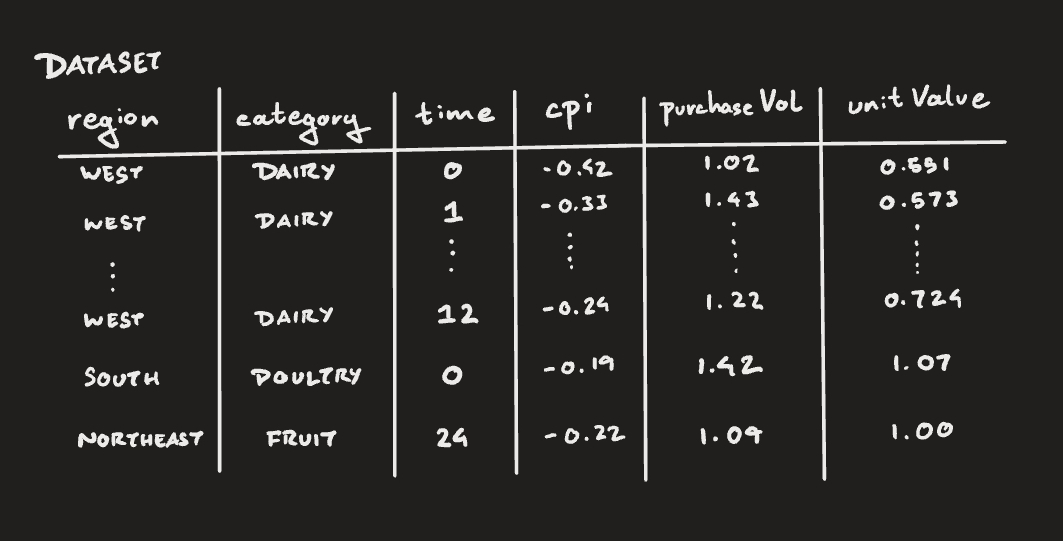 DATASET
region category time cpi purchase Vol unit Value
WEST DAIRY 0 -0.42 1.02 0.551
WEST DAIRY 1 -0.33 1.43 0.573
WEST DAIRY 12 -0.24 1.22 0.724
SOUTH POULTRY 0 -0.19 1.42 1.07
NORTHEAST FRUIT 24 -0.22 1.04 1.00